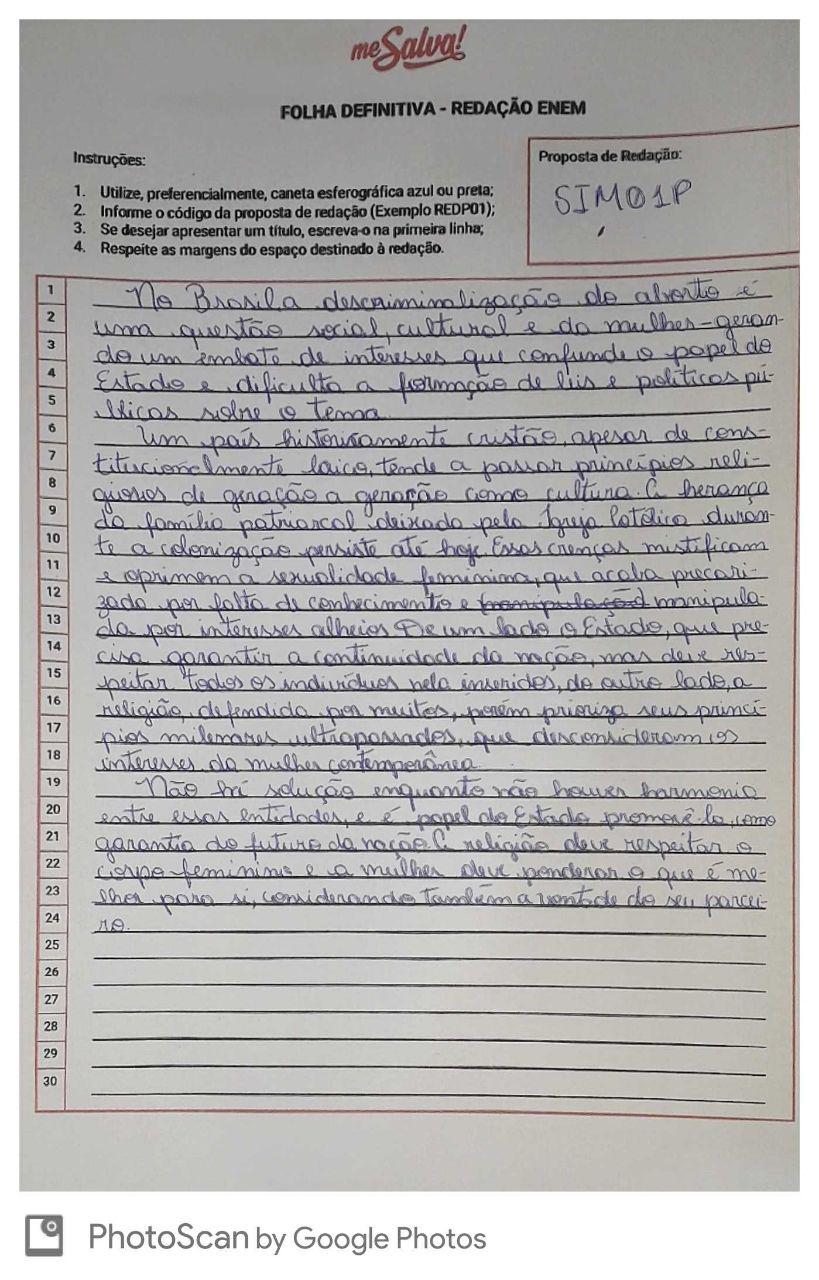 meSalva!
FOLHA DEFINITIVA - REDAÇÃO ENEM
Instruções:
1. Utilize, preferencialmente, caneta esferográfica azul ou preta;
2. Informe o código da proposta de redação (Exemplo REDP01);
3. Se desejar apresentar um título, escreva-o na primeira linha;
4. Respeite as margens do espaço destinado à redação.
Proposta de Redação:
SIM01P
1 No Brasil a descriminalização do aborto é
2 uma questão social, cultural e da mulher - geran-
3 do um embate de interesses que confunde o papel do
4 Estado e dificulta a formação de leis e políticas pú-
5 blicas sobre o tema.
6 Um país historicamente cristão, apesar de cons-
7 titucionalmente laico, tende a passar princípios reli-
8 giosos de geração a geração como cultura. A herança
9 da família patriarcal deixada pela Igreja Católica duran-
10 te a colonização persiste até hoje. Essas crenças mistificam
11 e oprimem a sexualidade feminina, que acaba precari-
12 zada por falta de conhecimento e manipulação manipula-
13 da por interesses alheios. De um lado o Estado, que pre-
14 cisa garantir a continuidade da nação, mas deve res-
15 peitar todos os indivíduos nela inseridos, do outro lado, a
16 religião, defendida por muitos, porém prioriza seus princí-
17 pios milenares ultrapassados, que desconsideram os
18 interesses da mulher contemporânea.
19 Não há solução enquanto não houver harmonia
20 entre essas entidades, e é papel do Estado promovê-la, como
21 garantia do futuro da nação. A religião deve respeitar o
22 corpo feminino e a mulher deve ponderar o que é me-
23 lhor para si, considerando também a vontade do seu parcei-
24 ro.
25
26
27
28
29
30
PhotoScan by Google Photos